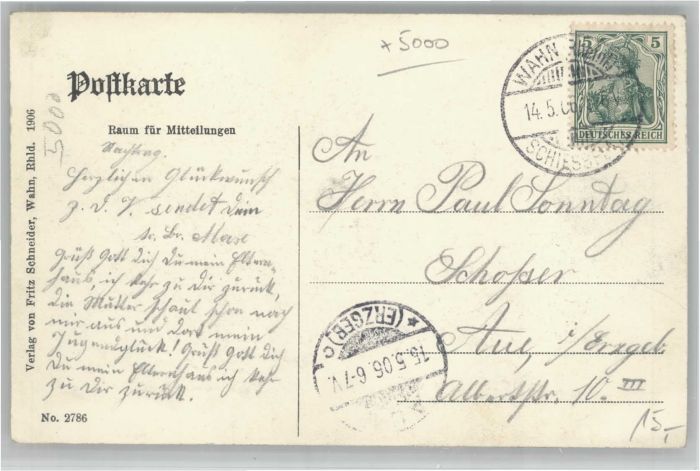 +5000
Postkarte
Raum für Mitteilungen
Nachtrag.
Herzlichen Glückwunsch
z. d. T. sendet Dein
tr. Br. Max
Grüß Gott dich Du mein Eltern-
haus, ich kehr zu Dir zurück,
die Mutter schaut schon nach
mir aus und dort mein
Jugendglück! Grüß Gott dich
Du mein Elternhaus ich kehr
zu Dir zurück.
No. 2786
Verlag von Fritz Schneider, Wahn, Rhld. 1906
5000
WAHN
14.5.06
SCHIESS
5 5
DEUTSCHES REICH
An
Herrn Paul Sonntag
Schosser
Aue, i/Erzgeb.
Albertstr. 10. III
(ERZGEB)
15.5.06. 6-7V.
15,-